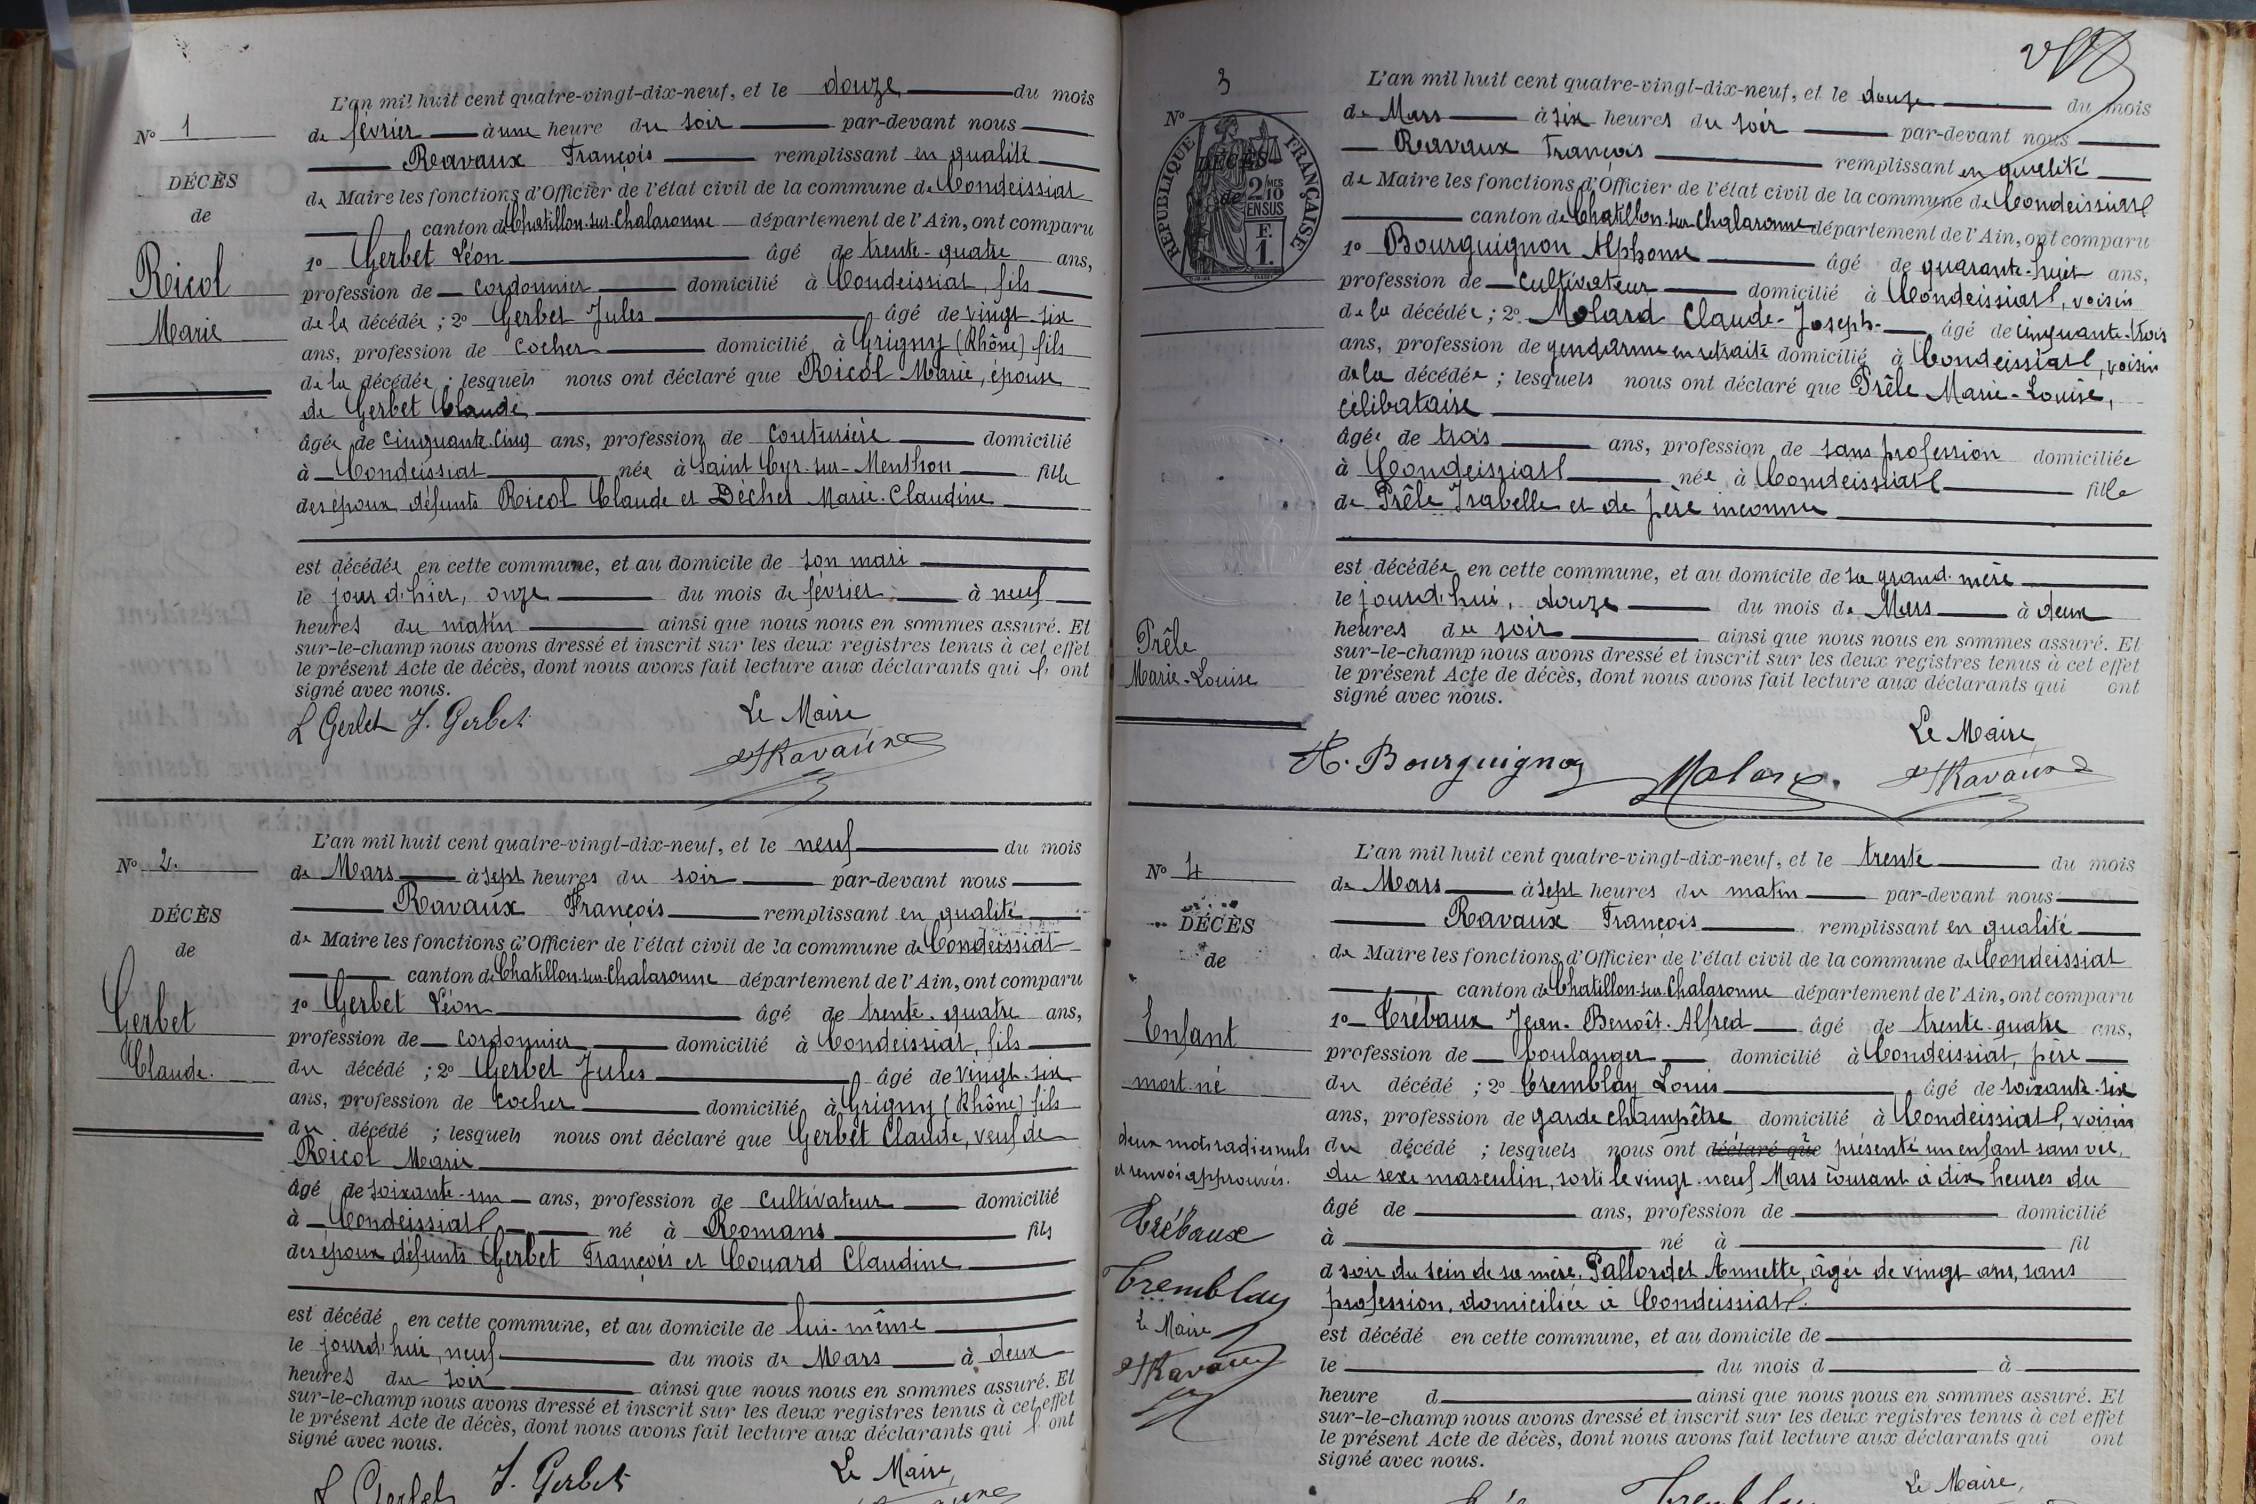 L'an mil huit cent quatre-vingt-dix-neuf, et le douze du mois
de février à une heure du soir par-devant nous
Ravaux François remplissant en qualité
de Maire les fonctions d'Officier de l'état civil de la commune de Condeissiat
canton de Chatillon-sur-Chalaronne département de l'Ain, ont comparu
1º Gerbet Léon âgé de trente-quatre ans,
profession de cordonnier domicilié à Condeissiat, fils
de la décédée ; 2º Gerbet Jules âgé de vingt-six
ans, profession de cocher domicilié à Grigny (Rhône) fils
de la décédée ; lesquels nous ont déclaré que Ricol Marie, épouse
de Gerbet Claude
âgée de cinquante-cinq ans, profession de couturière domicilié
à Condeissiat née à Saint Cyr-sur-Menthon fille
des époux défunts Ricol Claude et Décher Marie-Claudine
est décédée en cette commune, et au domicile de son mari
le jour d'hier, onze du mois de février à neuf
heures du matin ainsi que nous nous en sommes assuré. Et
sur-le-champ nous avons dressé et inscrit sur les deux registres tenus à cet effet
le présent Acte de décès, dont nous avons fait lecture aux déclarants qui l' ont
signé avec nous.
L Gerbet J. Gerbet
Le Maire
Ravaux
Nº 1
DÉCÈS
de
Ricol
Marie
Nº 2.
DÉCÈS
de
Gerbet
Claude.
L'an mil huit cent quatre-vingt-dix-neuf, et le neuf du mois
de Mars à sept heures du soir par-devant nous
Ravaux François remplissant en qualité
de Maire les fonctions d'Officier de l'état civil de la commune de Condeissiat
canton de Chatillon-sur-Chalaronne département de l'Ain, ont comparu
1º Gerbet Léon âgé de trente-quatre ans,
profession de cordonnier domicilié à Condeissiat, fils
du décédé ; 2º Gerbet Jules âgé de vingt-six
ans, profession de cocher domicilié à Grigny (Rhône) fils
du décédé ; lesquels nous ont déclaré que Gerbet Claude, veuf de
Ricol Marie
âgé de soixante-un ans, profession de cultivateur domicilié
à Condeissiat né à Romans fils
des époux défunts Gerbet François et Couard Claudine
est décédé en cette commune, et au domicile de lui-même
le jourd'hui, neuf du mois de Mars à deux
heures du soir ainsi que nous nous en sommes assuré. Et
sur-le-champ nous avons dressé et inscrit sur les deux registres tenus à cet effet
le présent Acte de décès, dont nous avons fait lecture aux déclarants qui l' ont
signé avec nous.
L Gerbet J. Gerbet
Le Maire,
3
Nº
DÉCÈS
de
RÉPUBLIQUE FRANÇAISE
2/10 MES
EN SUS
F.
1.
Prêle
Marie-Louise
L'an mil huit cent quatre-vingt-dix-neuf, et le douze du mois
de Mars à six heures du soir par-devant nous
Ravaux François remplissant en qualité
de Maire les fonctions d'Officier de l'état civil de la commune de Condeissiat
canton de Chatillon-sur-Chalaronne département de l'Ain, ont comparu
1º Bourguignon Alphonse âgé de quarante-huit ans,
profession de cultivateur domicilié à Condeissiat, voisin
de la décédée ; 2º Molard Claude-Joseph- âgé de cinquante-trois
ans, profession de gendarme en retraite domicilié à Condeissiat, voisin
de la décédée ; lesquels nous ont déclaré que Prêle Marie-Louise,
célibataire
âgée de trois ans, profession de sans profession domiciliée
à Condeissiat née à Condeissiat fille
de Prêle Isabelle et de père inconnu
est décédée en cette commune, et au domicile de sa grand-mère
le jourd'hui, douze du mois de Mars à deux
heures du soir ainsi que nous nous en sommes assuré. Et
sur-le-champ nous avons dressé et inscrit sur les deux registres tenus à cet effet
le présent Acte de décès, dont nous avons fait lecture aux déclarants qui ont
signé avec nous.
Le Maire
A. Bourguignon Molard Ravaux
Nº 4
DÉCÈS
de
Enfant
mort-né
deux mots radiés nuls
et renvoi approuvés.
Trébaux
Tremblay
Le Maire
Ravaux
L'an mil huit cent quatre-vingt-dix-neuf, et le trente du mois
de Mars à sept heures du matin par-devant nous
Ravaux François remplissant en qualité
de Maire les fonctions d'Officier de l'état civil de la commune de Condeissiat
canton de Chatillon-sur-Chalaronne département de l'Ain, ont comparu
1º Trébaux Jean-Benoît-Alfred âgé de trente-quatre ans,
profession de boulanger domicilié à Condeissiat, père
du décédé ; 2º Tremblay Louis âgé de soixante-six
ans, profession de garde champêtre domicilié à Condeissiat, voisin
du décédé ; lesquels nous ont déclaré que présenté un enfant sans vie,
du sexe masculin, sorti le vingt-neuf Mars courant à dix heures du
âgé de ans, profession de domicilié
à né à fil
d soir du sein de sa mère, Pallordet Annette, âgée de vingt ans, sans
profession, domiciliée à Condeissiat.
est décédé en cette commune, et au domicile de
le du mois d à
heure d ainsi que nous nous en sommes assuré. Et
sur-le-champ nous avons dressé et inscrit sur les deux registres tenus à cet effet
le présent Acte de décès, dont nous avons fait lecture aux déclarants qui ont
signé avec nous.
Tremblay
Le Maire,